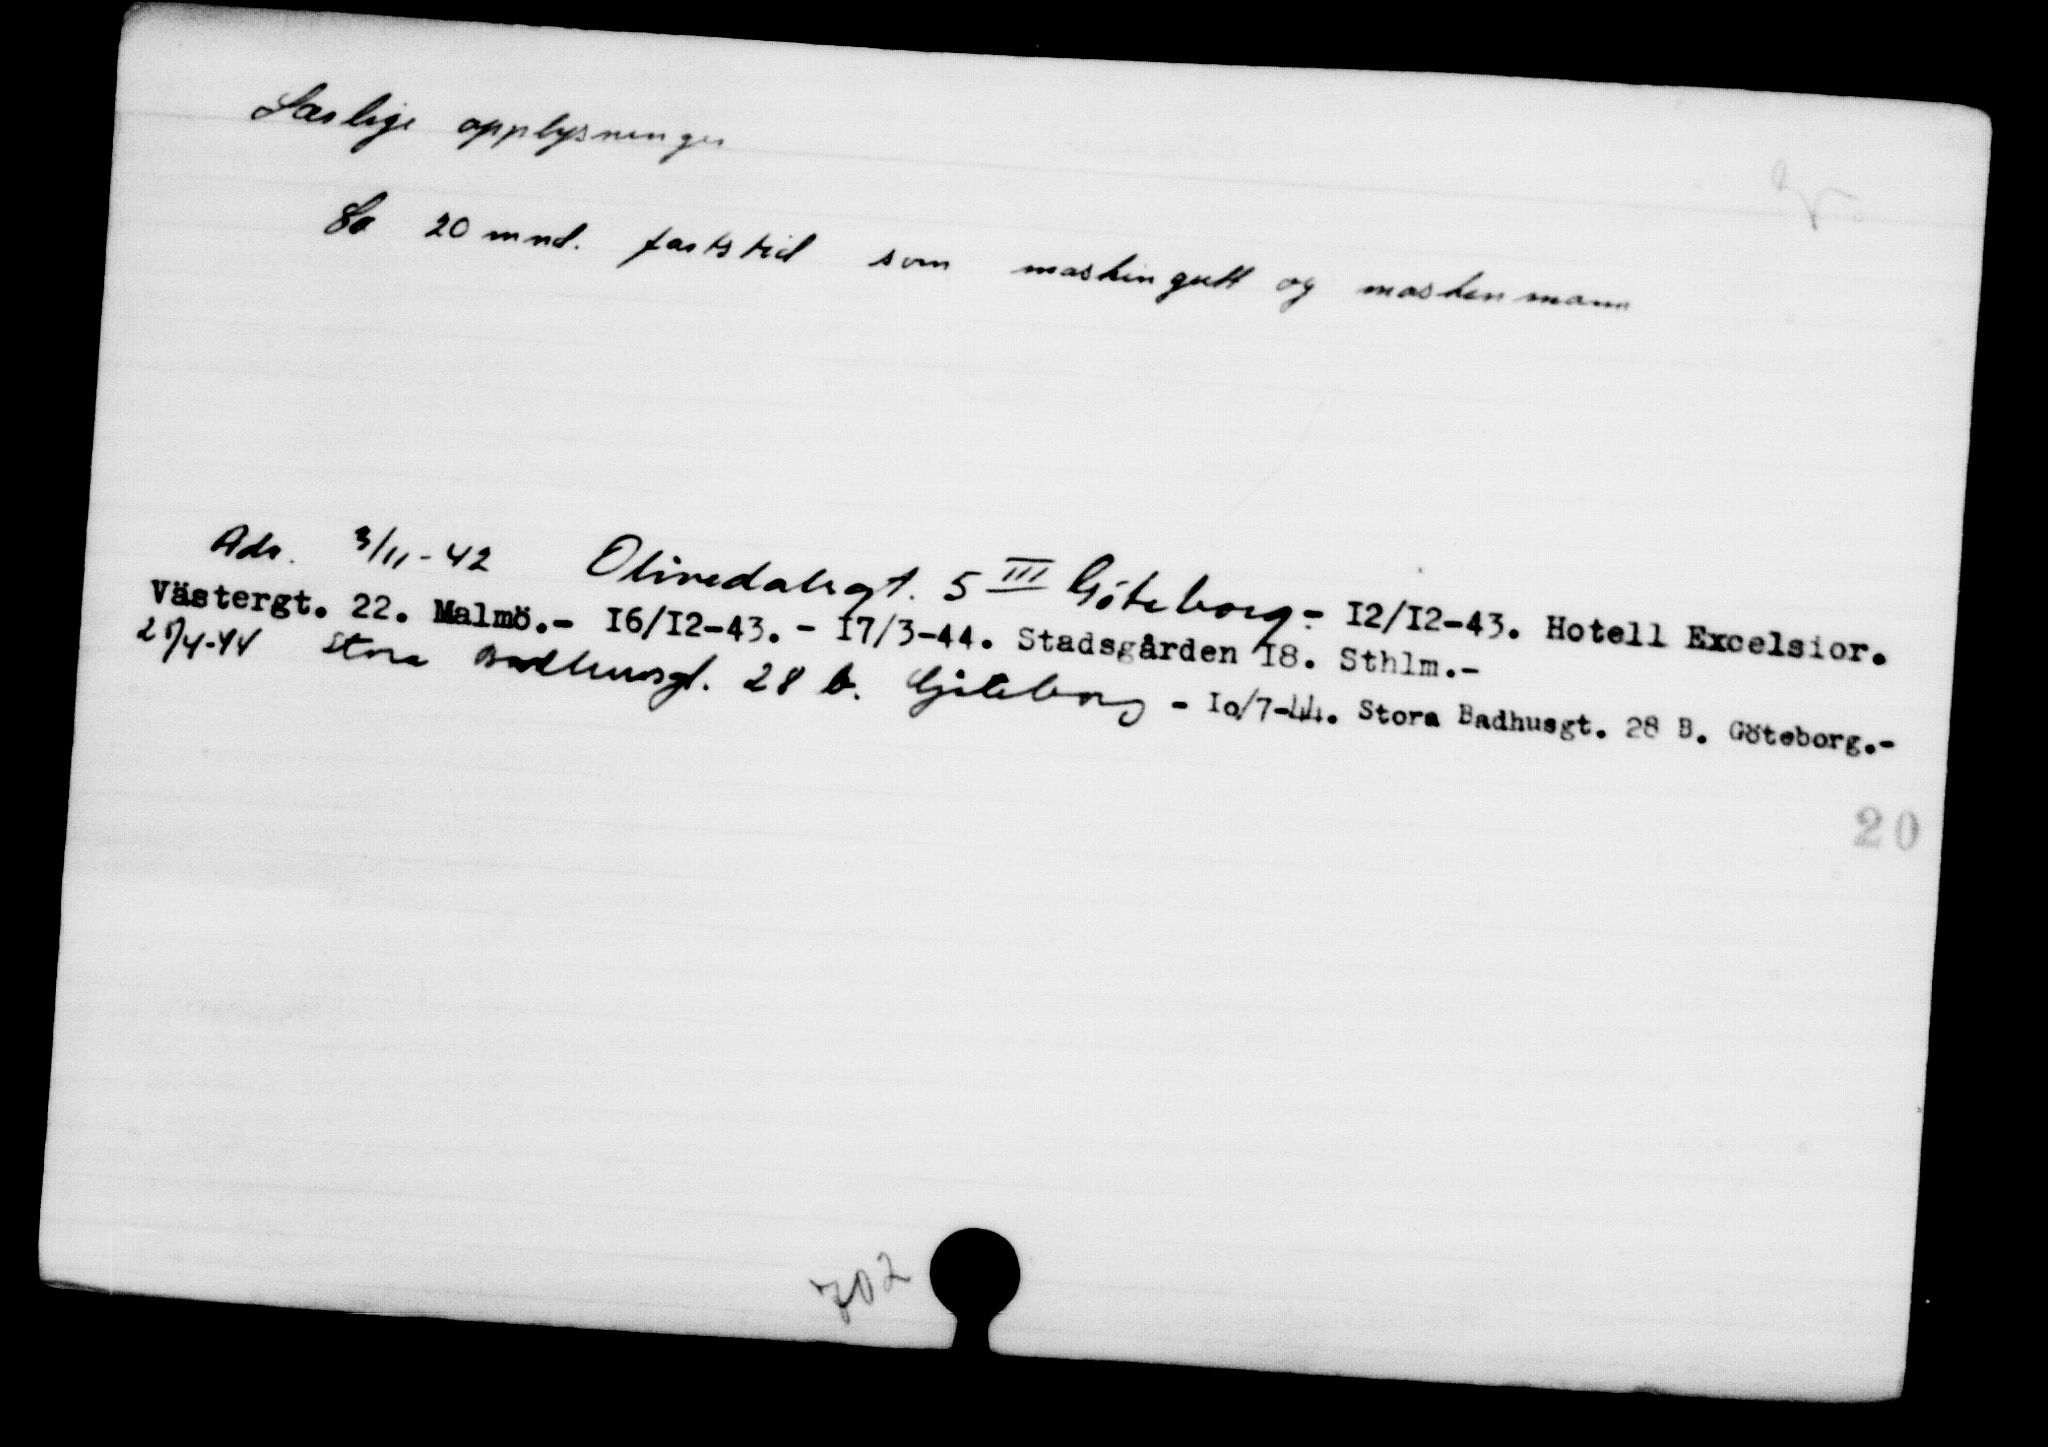 Særlige opplysninger
Ca 20 mnd. fartstid som maskingutt og maskinmann
Adr. 3/11-42 Olivedalsgt. 5 III Göteborg.- I2/I2-43. Hotell Excelsior.
Västergt. 22. Malmö.- I6/I2-43. - I7/3-44. Stadsgården I8. Sthlm.-
/4-44 Stora Badhusgt. 28 b. Göteborg - Io/7-44. Stora Badhusgt. 28 B. Göteborg.-
20
702